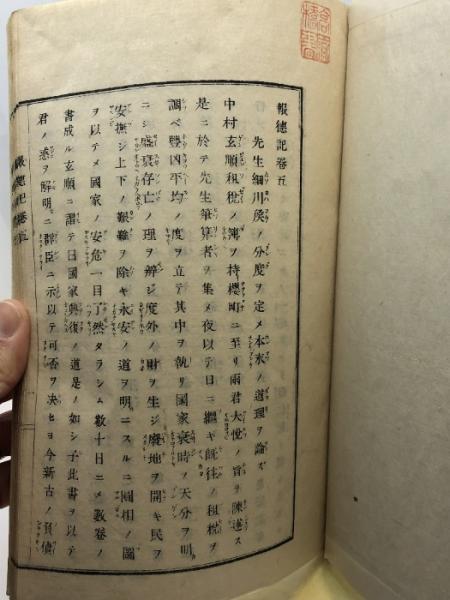 報德記卷五
先生細川侯ノ分度ヲ定メ本末ノ道理ヲ論ズ
中村玄順租稅ノ簿ヲ持櫻町ニ至リ兩君大悅ノ旨ヲ陳述ス
是ニ於テ先生筆算者ヲ集メ夜以テ日ニ繼ギ旣往ノ租稅ヲ
調ベ豐凶平均ノ度ヲ立テ其中ヲ執リ國家衰時ノ天分ヲ明
ニシ盛衰存亡ノ理ヲ辨ジ度外ノ財ヲ生ジ廢地ヲ開キ民ヲ
安撫シ上下ノ艱難ヲ除キ永安ノ道ヲ明ニスルニ圓相ノ圖
ヲ以テメ國家ノ安危一目了然タラシム數十日ニメ數卷ノ
書成ル玄順ニ謂テ曰國家興復ノ道是ノ如シ子此書ヲ以テ
君ノ惑ヲ解明ニ群臣ニ示以テ可否ヲ決セヨ今新古ノ負債
報德記卷五